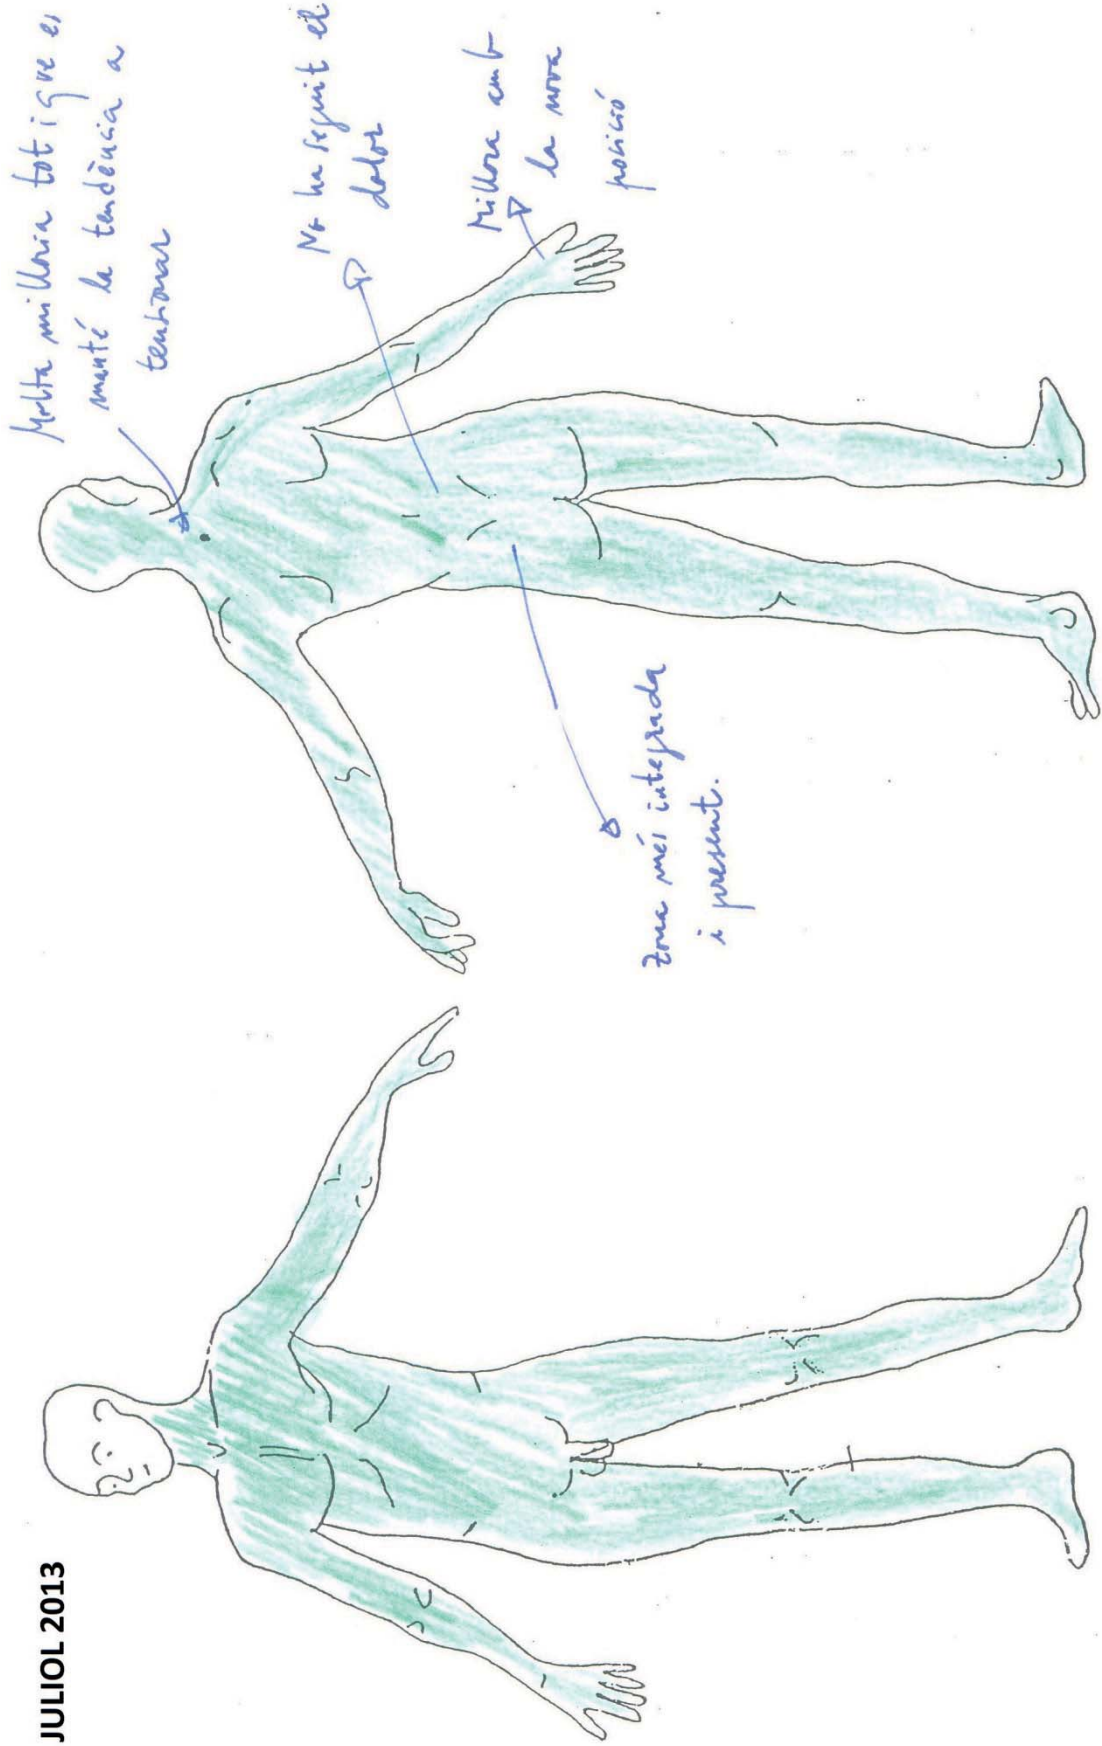 JULIOL 2013
Molta milloria tot i que es
manté la tendència a
tensionar
No ha seguit el
dolor
Millora amb
la nova
posició
Zona més integrada
i present.